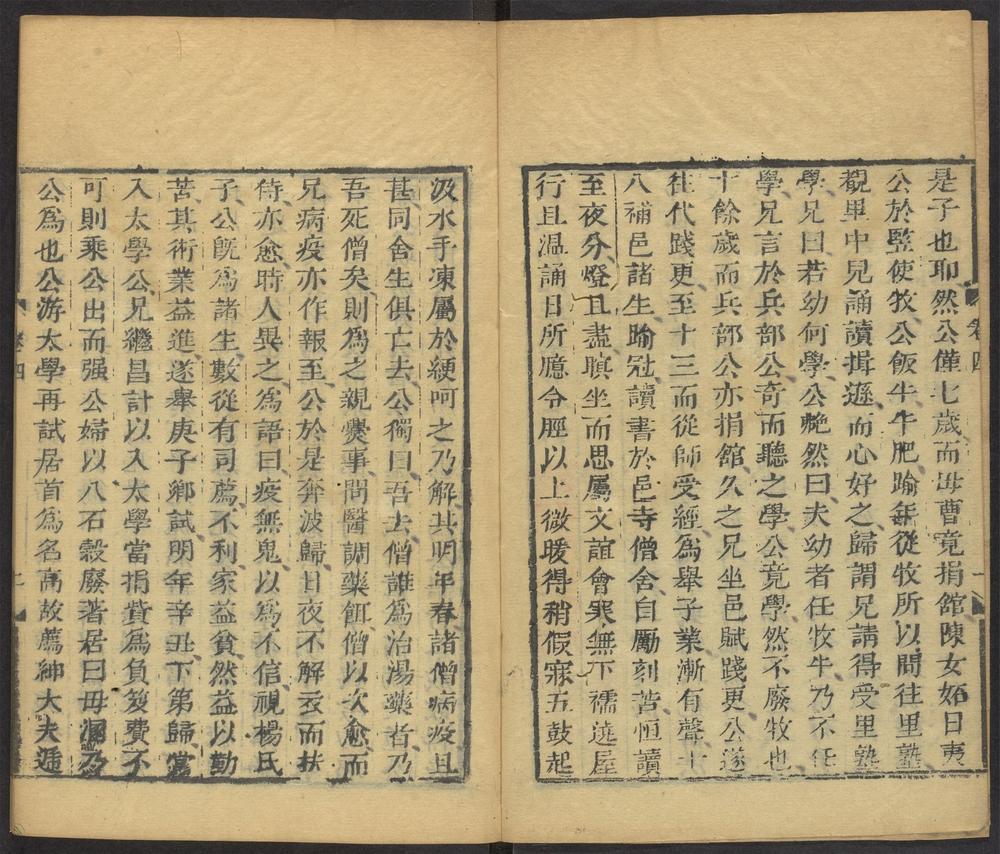 是子也耶然公僅七歲而毋曹竟捐館陳女妬日夷
公於豎使牧公飯牛牛肥踰年從牧所以間往里塾
觀里中兒誦讀揖遜而心好之歸謂兄請得受里塾
學兄曰若幼何學公艴然曰夫幼者任牧牛乃不任
學兄言於兵部公奇而聽之學公竟學然不廢牧也
十餘歲而兵部公亦捐館久之兄坐邑賦踐更公遂
往代踐更至十三而從師受經爲舉子業漸有聲十
八補邑諸生踰冠讀書於邑寺僧舍自勵刻苦恒讀
至夜分燈且盡瞑坐而思屬文誼會寒無下襦遶屋
行且温誦日所臆令脛以上微暖得稍假寐五鼓起
卷四
汲水手凍屬於綆呵之乃解其明年春諸僧病疫且
甚同舍生俱亡去公獨曰吾去僧誰爲治湯藥者乃
吾死僧矣則爲之親爨事問醫調藥餌僧以次愈而
兄病疫亦作報至公於是奔波歸日夜不解衣而扶
侍亦愈時人異之爲語曰疫無鬼以爲不信視楊氏
子公旣爲諸生數從有司薦不利家益貧然益以勤
苦其術業益進遂舉庚子鄉試明年辛丑下第歸當
入太學公兄繼昌計以入太學當捐貲爲負笈費不
可則乘公出而强公婦以八石穀廢著居曰毋溷乃
公爲也公游太學再試居首爲名高故薦紳大夫遞
卷四